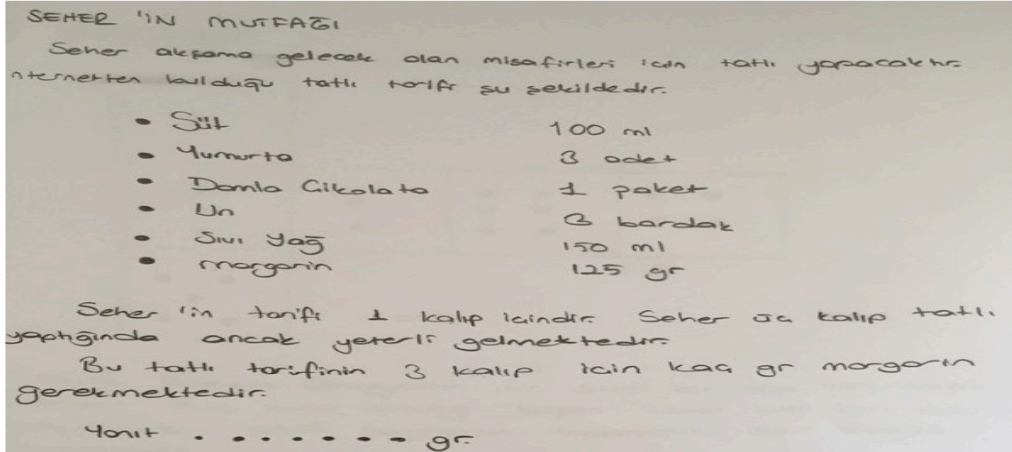 SEHER 'İN MUTFAĞI
Seher akşama gelecek olan misafirleri için tatlı yapacaktır.
nternetten bulduğu tatlı tarifi şu şekildedir.
• Süt 100 ml
• Yumurta 3 adet
• Damla Çikolata 1 paket
• Un 3 bardak
• Sıvı Yağ 150 ml
• Margarin 125 gr
Seher 'in tarifi 1 kalıp içindir. Seher üç kalıp tatlı
yaptığında ancak yeterli gelmektedir.
Bu tatlı tarifinin 3 kalıp için kaç gr margarin
gerekmektedir.
Yanıt . . . . . . . gr.